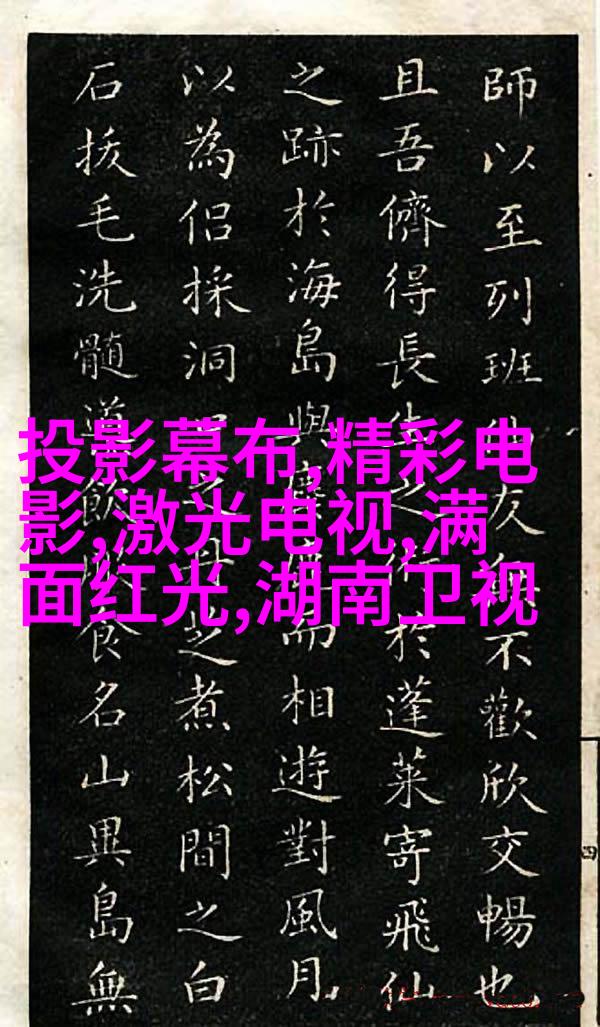 投影幕布,精彩电
影,激光电视,满
面红光,湖南卫视
師以至列班友無不歡欣交暢也
且吾儕得長生之術於蓬萊寄飛仙
之跡於海島與而相遊對風月
以為侶採洞母之煮松間之白
石拔毛洗髓道飲食名山異島無
四